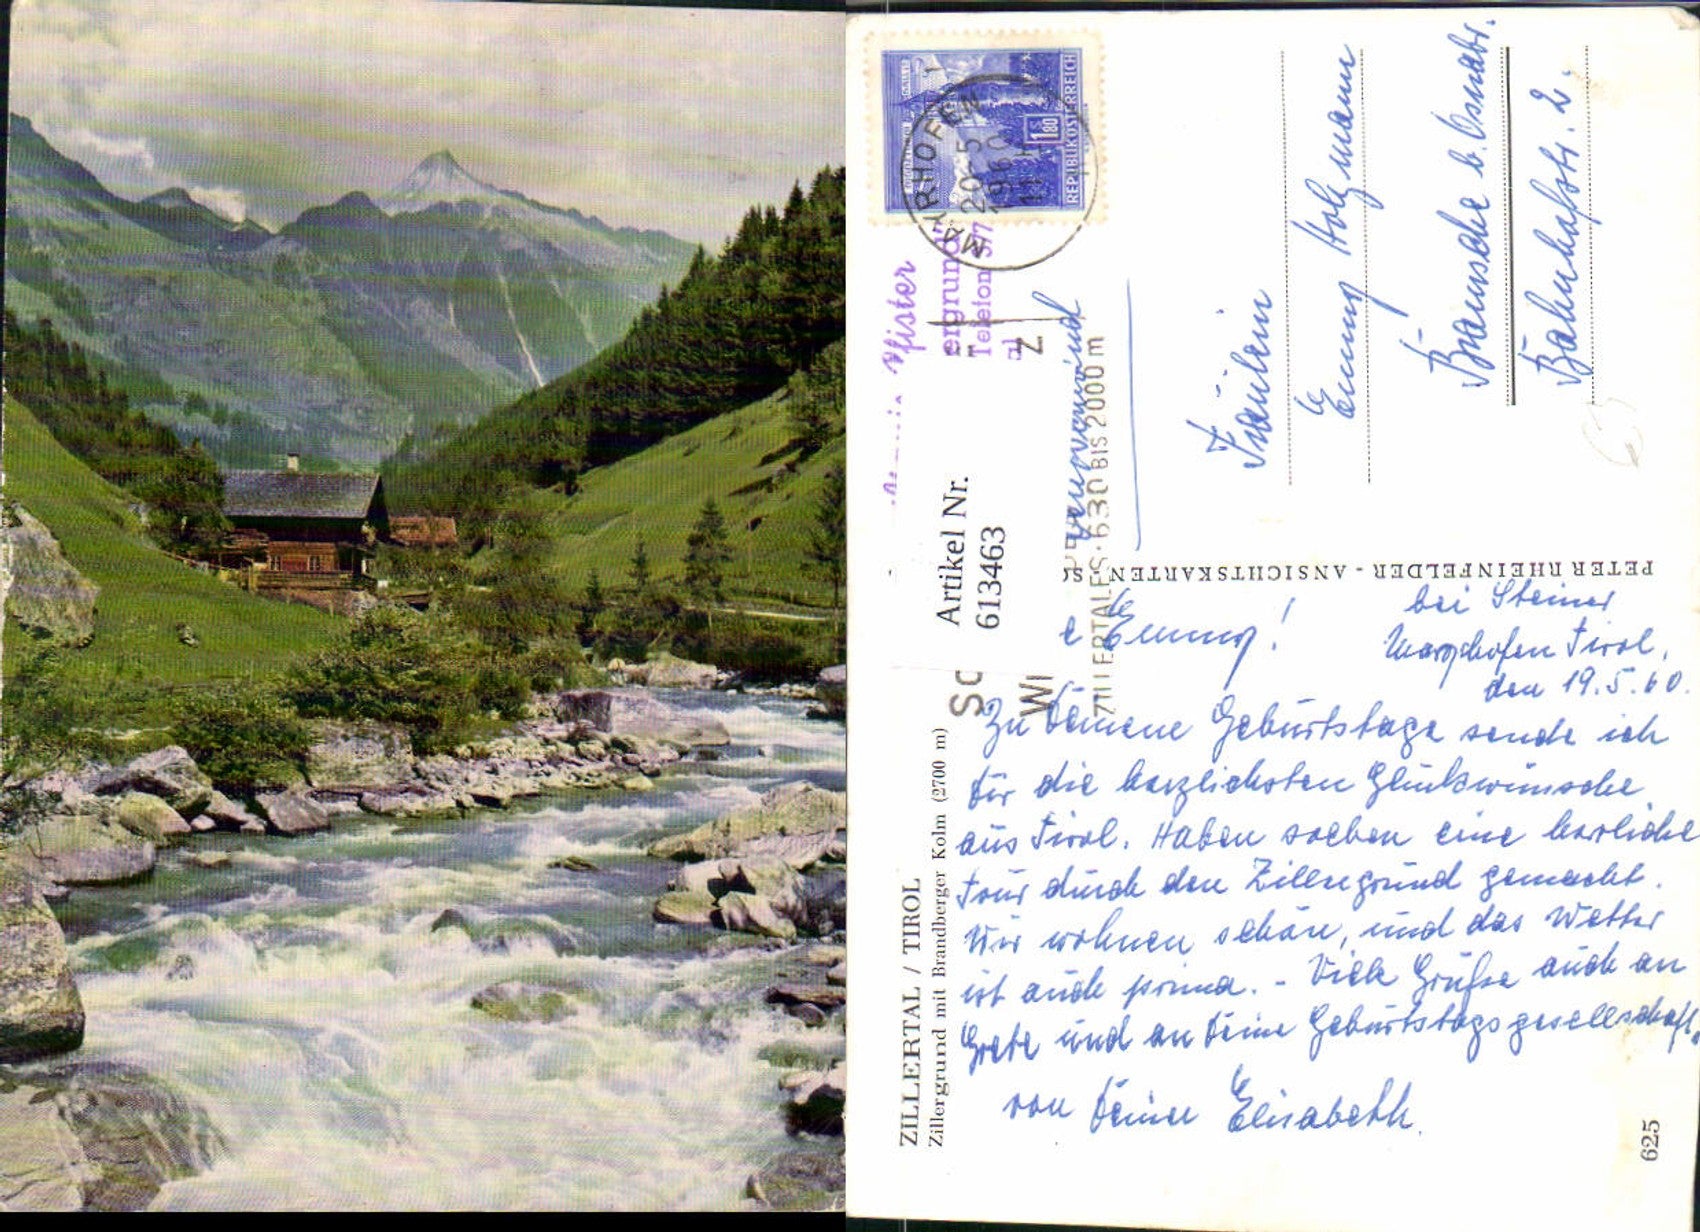 REPUBLIK ÖSTERREICH
1 S 80
MAYRHOFEN
20-5
1960
Pfister
ergrund
Telefon 377
Artikel Nr.
6133463
ZILLERTALES·630 BIS 2000 m
Fräulein
Emmy Holzmann
Bramsche b. Osnabr.
Bahnhofstr. 2.
PETER RHEINFELDER - ANSICHTSKARTEN
bei Steiner
Mayrhofen Tirol,
den 19.5.60.
e Emmy!
Zu Deinem Geburtstage sende ich
Dir die herzlichsten Glückwünsche
aus Tirol. Haben soeben eine herrliche
Tour durch den Zillergrund gemacht.
Wir wohnen schön, und das Wetter
ist auch prima. - Viele Grüße auch an
Grete und an Deine Geburtstagsgesellschaft
von Deiner Elisabeth.
ZILLERTAL / TIROL
Zillergrund mit Brandberger Kolm (2700 m)
625